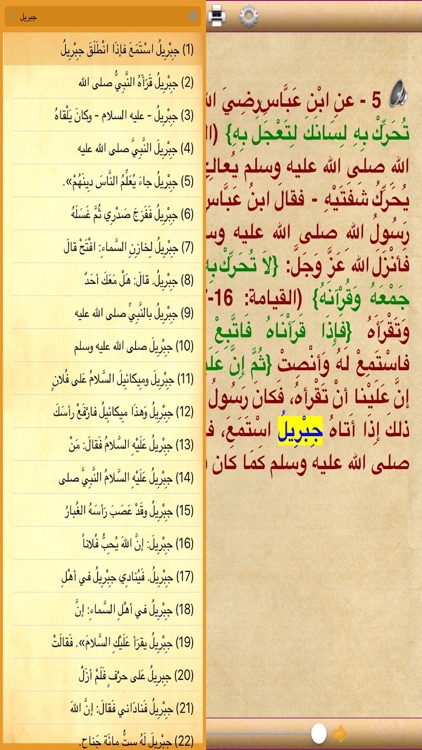 جبريل
(1) جِبْرِيلُ اسْتَمَعَ فإذا انْطَلَقَ جِبْرِيلُ
(2) جِبْرِيلُ قَرَأهُ النَّبِيُّ صلى الله
(3) جِبْرِيلُ - عليه السلام - وكانَ يَلْقاهُ
(4) جِبْرِيلُ النَّبِيَّ صلى الله عليه
(5) جِبْرِيلُ جاءَ يُعَلِّمُ النَّاسَ دِينَهُمْ».
(6) جِبْرِيلُ فَفَرَجَ صَدْرِي ثُمَّ غَسَلَهُ
(7) جِبْرِيلُ لِخازِنِ السَّماءِ: افْتَحْ قالَ
(8) جِبْرِيلُ. قالَ: هَلْ مَعَكَ أحَدٌ
(9) جِبْرِيلُ بالنَّبِيِّ صلى الله عليه
(10) جِبْرِيلَ صلى الله عليه وسلم
(11) جِبْرِيلَ ومِيكائِيلَ السَّلامُ عَلى فُلانٍ
(12) جِبْرِيلُ وهَذا مِيكائِيلُ فارْفَعْ رأسَكَ
(13) جِبْرِيلُ عَلَيْهِ السَّلامُ فَقالَ: مَنْ
(14) جِبْرِيلُ عَلَيْهِ السَّلامُ النَّبِيَّ صلى
(15) جِبْرِيلُ وقَدْ عَصَبَ رَأسَهُ الغُبارُ
(16) جِبْرِيلَ: إنَّ اللهَ يُحِبُّ فُلاناً
(17) جِبْرِيلُ. فَيُنادِي جِبْرِيلُ في أهْلِ
(18) جِبْرِيلُ في أهْلِ السَّماءِ: إنَّ
(19) جِبْرِيلُ يقرَأ عَلَيْكِ السَّلامَ». فَقالَتْ
(20) جِبْرِيلُ عَلى حرْفٍ فَلَمْ أزَلْ
(21) جِبْرِيلُ فَناداني فَقالَ: إنَّ اللهَ
(22) جِبْرِيلَ لَهُ سِتُّ مائَةِ جَناحٍ.
5 - عن ابْنِ عَبَّاسٍ رضِيَ
تُحَرِّكْ بِهِ لِسَانَكَ لِتَعْجَلَ بِهِ}
الله صلى الله عليه وسلم يُعالِجُ
يُحَرِّكُ شَفَتَيْهِ - فقالَ ابنُ عَبَّاسٍ
رسُولُ الله صلى الله عليه
فأنْزَلَ اللهُ عَزَّ وَجَلَّ: {لا تُحَرِّكْ بِهِ
جَمْعَهُ وَقُرْآنَهُ} (القيامة: 16-
وَتَقْرَأَهُ {فَإِذَا قَرَأْنَاهُ فَاتَّبِعْ
فاسْتَمِعْ لهُ وأنْصتْ {ثُمَّ إنَّ
إنَّ عَلَيْنا أنْ تَقْرأهُ، فَكان رسُولُ
ذلكَ إذا أتاهُ جِبْرِيلُ اسْتَمَعَ،
صلى الله عليه وسلم كَمَا كان